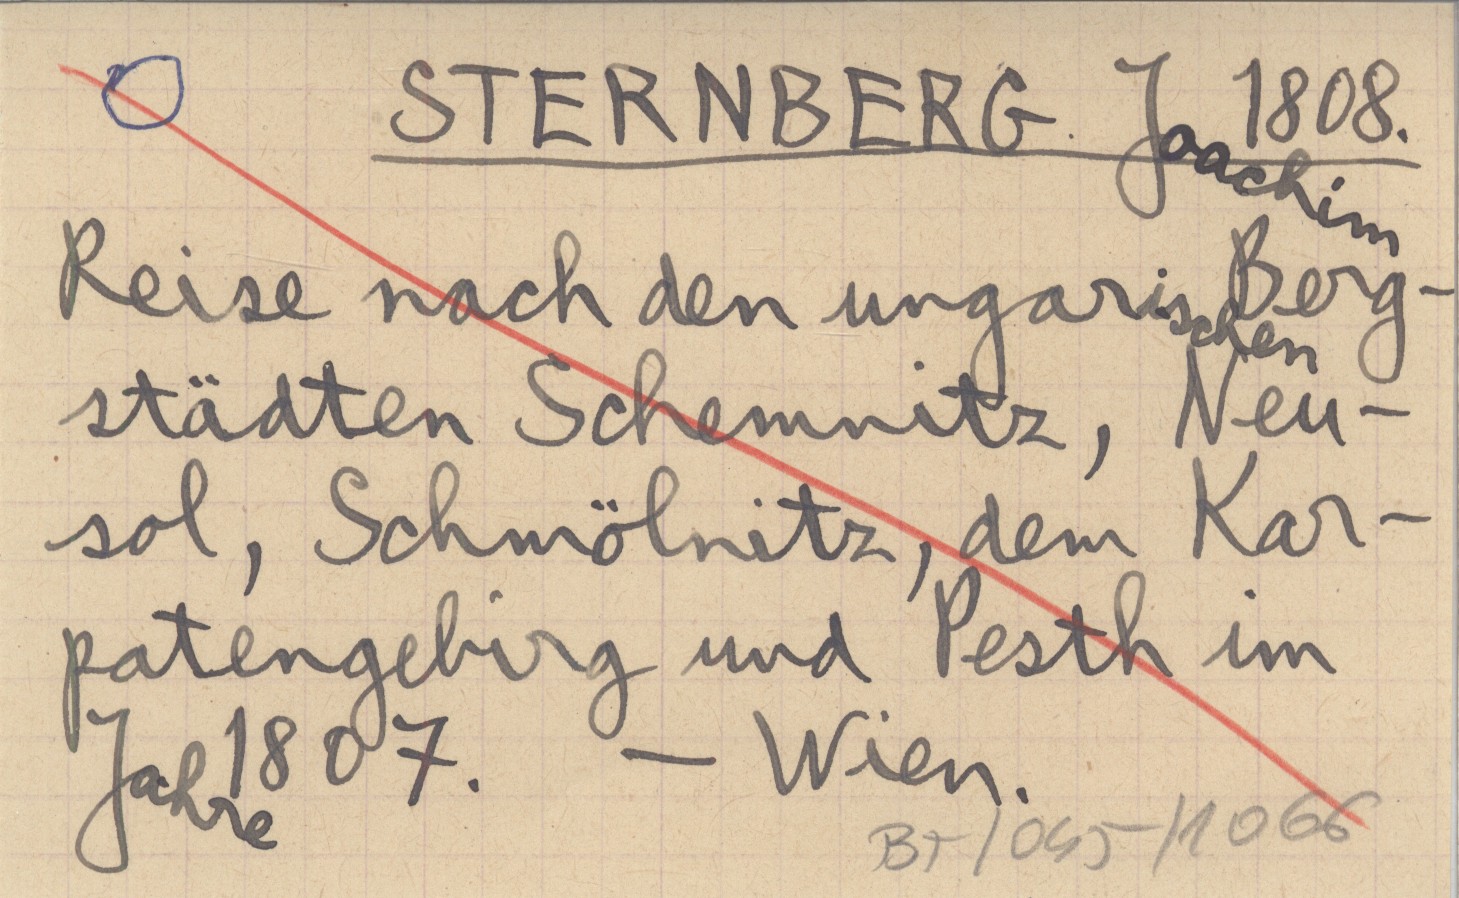 STERNBERG Joachim 1808.
Reise nach den ungarischen Berg-
städten Schemnitz, Neu-
sol, Schmölnitz, dem Kar-
patengebirg und Pesth im
Jahre 1807. — Wien.
BT/045/1066